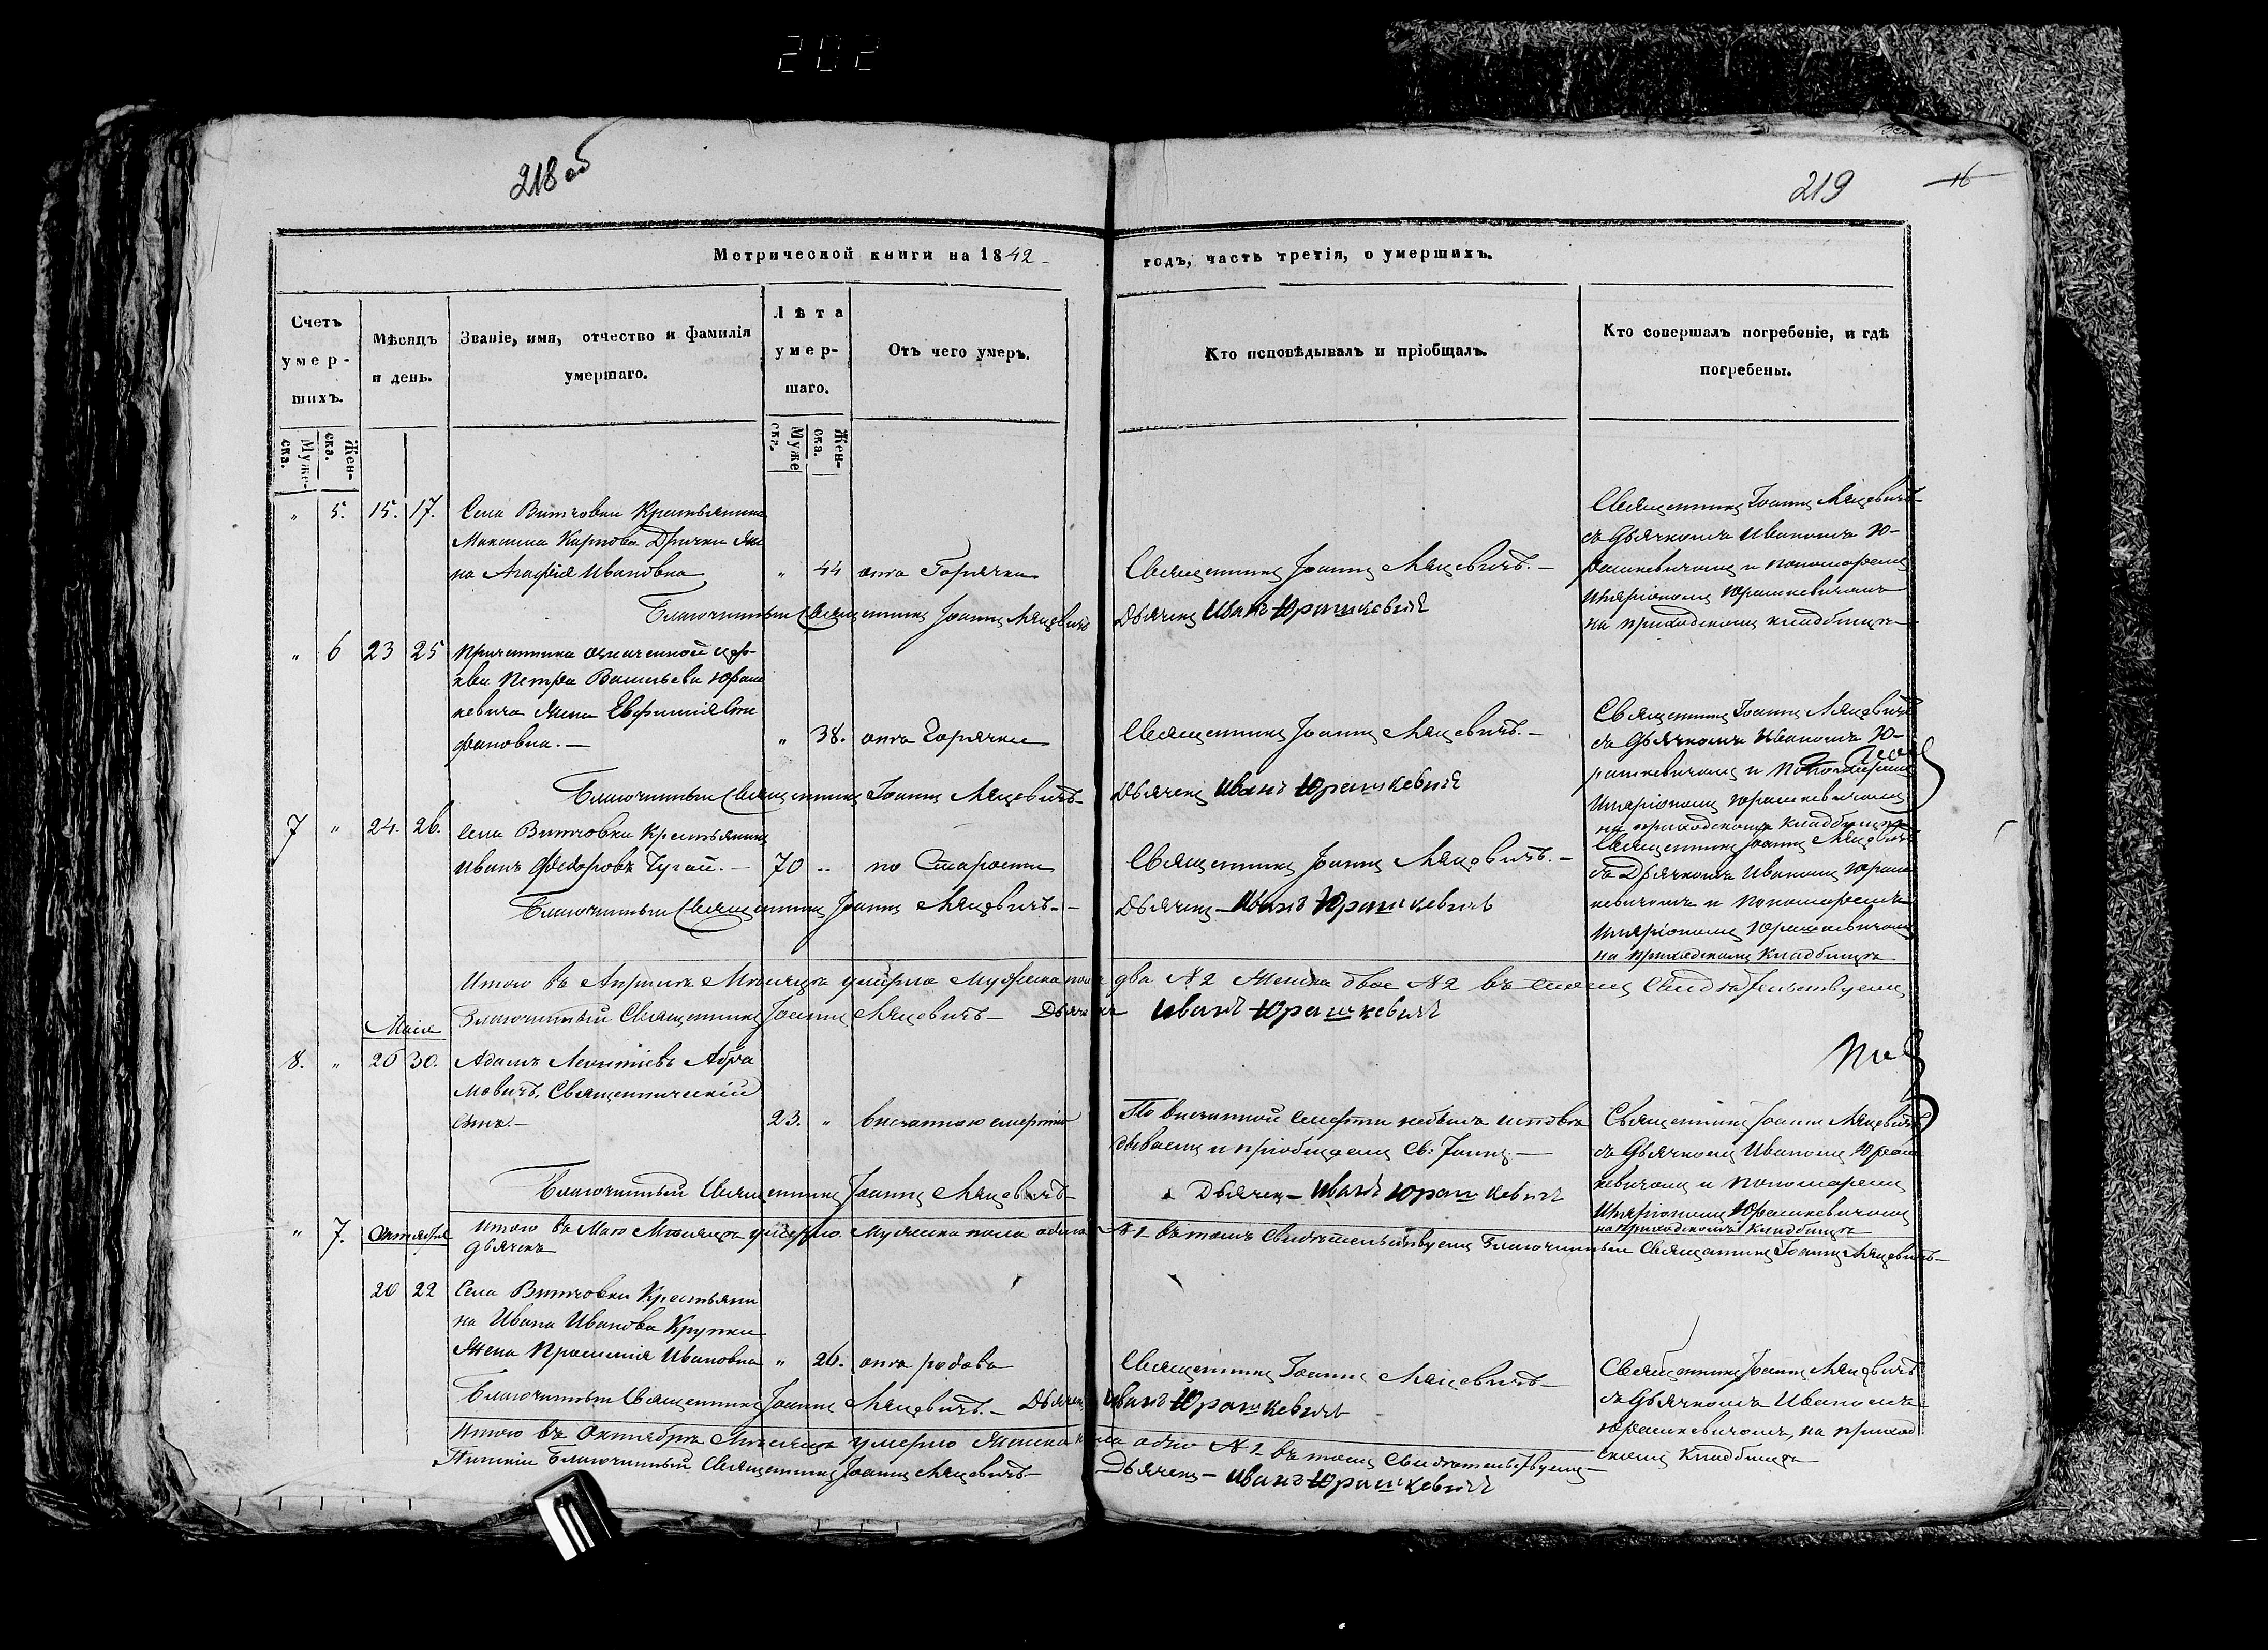 202
218 об
219
16
Метрической книги на 1842
годъ, часть третія, о умершихъ.
Счетъ умер-шихъ.
Мѣсяцъ и день.
Званіе, имя, отчество и фамилія умершаго.
Лѣта умер-шаго.
Отъ чего умеръ.
Кто исповѣдывалъ и пріобщалъ.
Кто совершалъ погребеніе, и гдѣ погребены.
Муже-ска.
Жен-ска.
Муже ска.
Жен-ска.
" 5. 15. 17. Села Витчовки Крестьянина
Максима Карпова Дрички Же
на Агафія Ивановна " 44 отъ Горячки
Священникъ Іоаннъ Мацевичъ.–
Священникъ Іоаннъ Мацевичъ
съ Дьячкомъ Иваномъ Ю-
рашкевичомъ и пономаремъ
Иларіономъ Юрашкевичомъ
на приходскомъ кладбищѣ
Благочинный Священникъ Іоаннъ Мацевичъ
Дьячекъ Иванъ Юрашкевичъ
" 6 23 25 Причетника означенной цер-
кви Петра Васильева Юраш
кевича Жена Евфимія Сте
фановна.– " 38. отъ Горячки
Священникъ Іоаннъ Мацевичъ.–
Священникъ Іоаннъ Мацевичъ
съ Дьячкомъ Иваномъ Ю-
рашкевичомъ и Пономаремъ
Иларіономъ Юрашкевичомъ
на приходскомъ кладбищѣ
Благочинный Священникъ Іоаннъ Мацевичъ
Дьячекъ Иванъ Юрашкевичъ
7 " 24. 26. Села Витчовки Крестьянинъ
Иванъ Федоровъ Чугай.– 70 " по Старости
Священникъ Іоаннъ Мацевичъ.–
Священникъ Іоаннъ Мацевичъ
съ Дьячкомъ Иваномъ Юраш
кевичомъ и Пономаремъ
Иларіономъ Юрашкевичомъ
на приходскомъ Кладбищѣ
Благочинный Священникъ Іоаннъ Мацевичъ–
Дьячекъ – Иванъ Юрашкевичъ
Итого въ Апрѣлѣ Мѣсяцѣ умерло Мужска пола два №2 Женска двое №2 въ семъ Свидѣтельствуемъ
Благочинный Священникъ Іоаннъ Мацевичъ – Дьячекъ Иванъ Юрашкевичъ
Маія
8. " 26 30. Адамъ Леонтіевъ Абра
мовичъ, Священническій
сынъ.– 23. " внезапною смертію
По внезапной смерти небылъ исповѣ
дываемъ и пріобщаемъ Св: Таинъ –
Священникъ Іоаннъ Мацевичъ
съ Дьячкомъ Иваномъ Юраш
кевичомъ и Пономаремъ
Иларіономъ Юрашкевичомъ
на приходскомъ Кладбищѣ
Благочинный Священникъ Іоаннъ Мацевичъ
Дьячекъ – Иванъ Юрашкевичъ
Итого въ Маю Мѣсяцѣ умерло мужска пола одинъ №1 въ томъ Свидѣтельствуемъ Благочинный Священникъ Іоаннъ Мацевичъ–
Дьячекъ
" 7. Октября
20 22 Села Витчовки Крестьяни
на Ивана Иванова Крупки
Жена Просимія Ивановна " 26. отъ родовъ
Священникъ Іоаннъ Мацевичъ–
Священникъ Іоаннъ Мацевичъ
съ Дьячкомъ Иваномъ
Юрашкевичомъ, на приход
скомъ Кладбищѣ
Благочинный Священникъ Іоаннъ Мацевичъ.– Дьячекъ Иванъ Юрашкевичъ
Итого въ Октябрѣ Мѣсяцѣ умерло Женска пола одно №1 въ томъ Свидѣтельствуемъ
Благочинный Священникъ Іоаннъ Мацевичъ–
Дьячекъ – Иванъ Юрашкевичъ